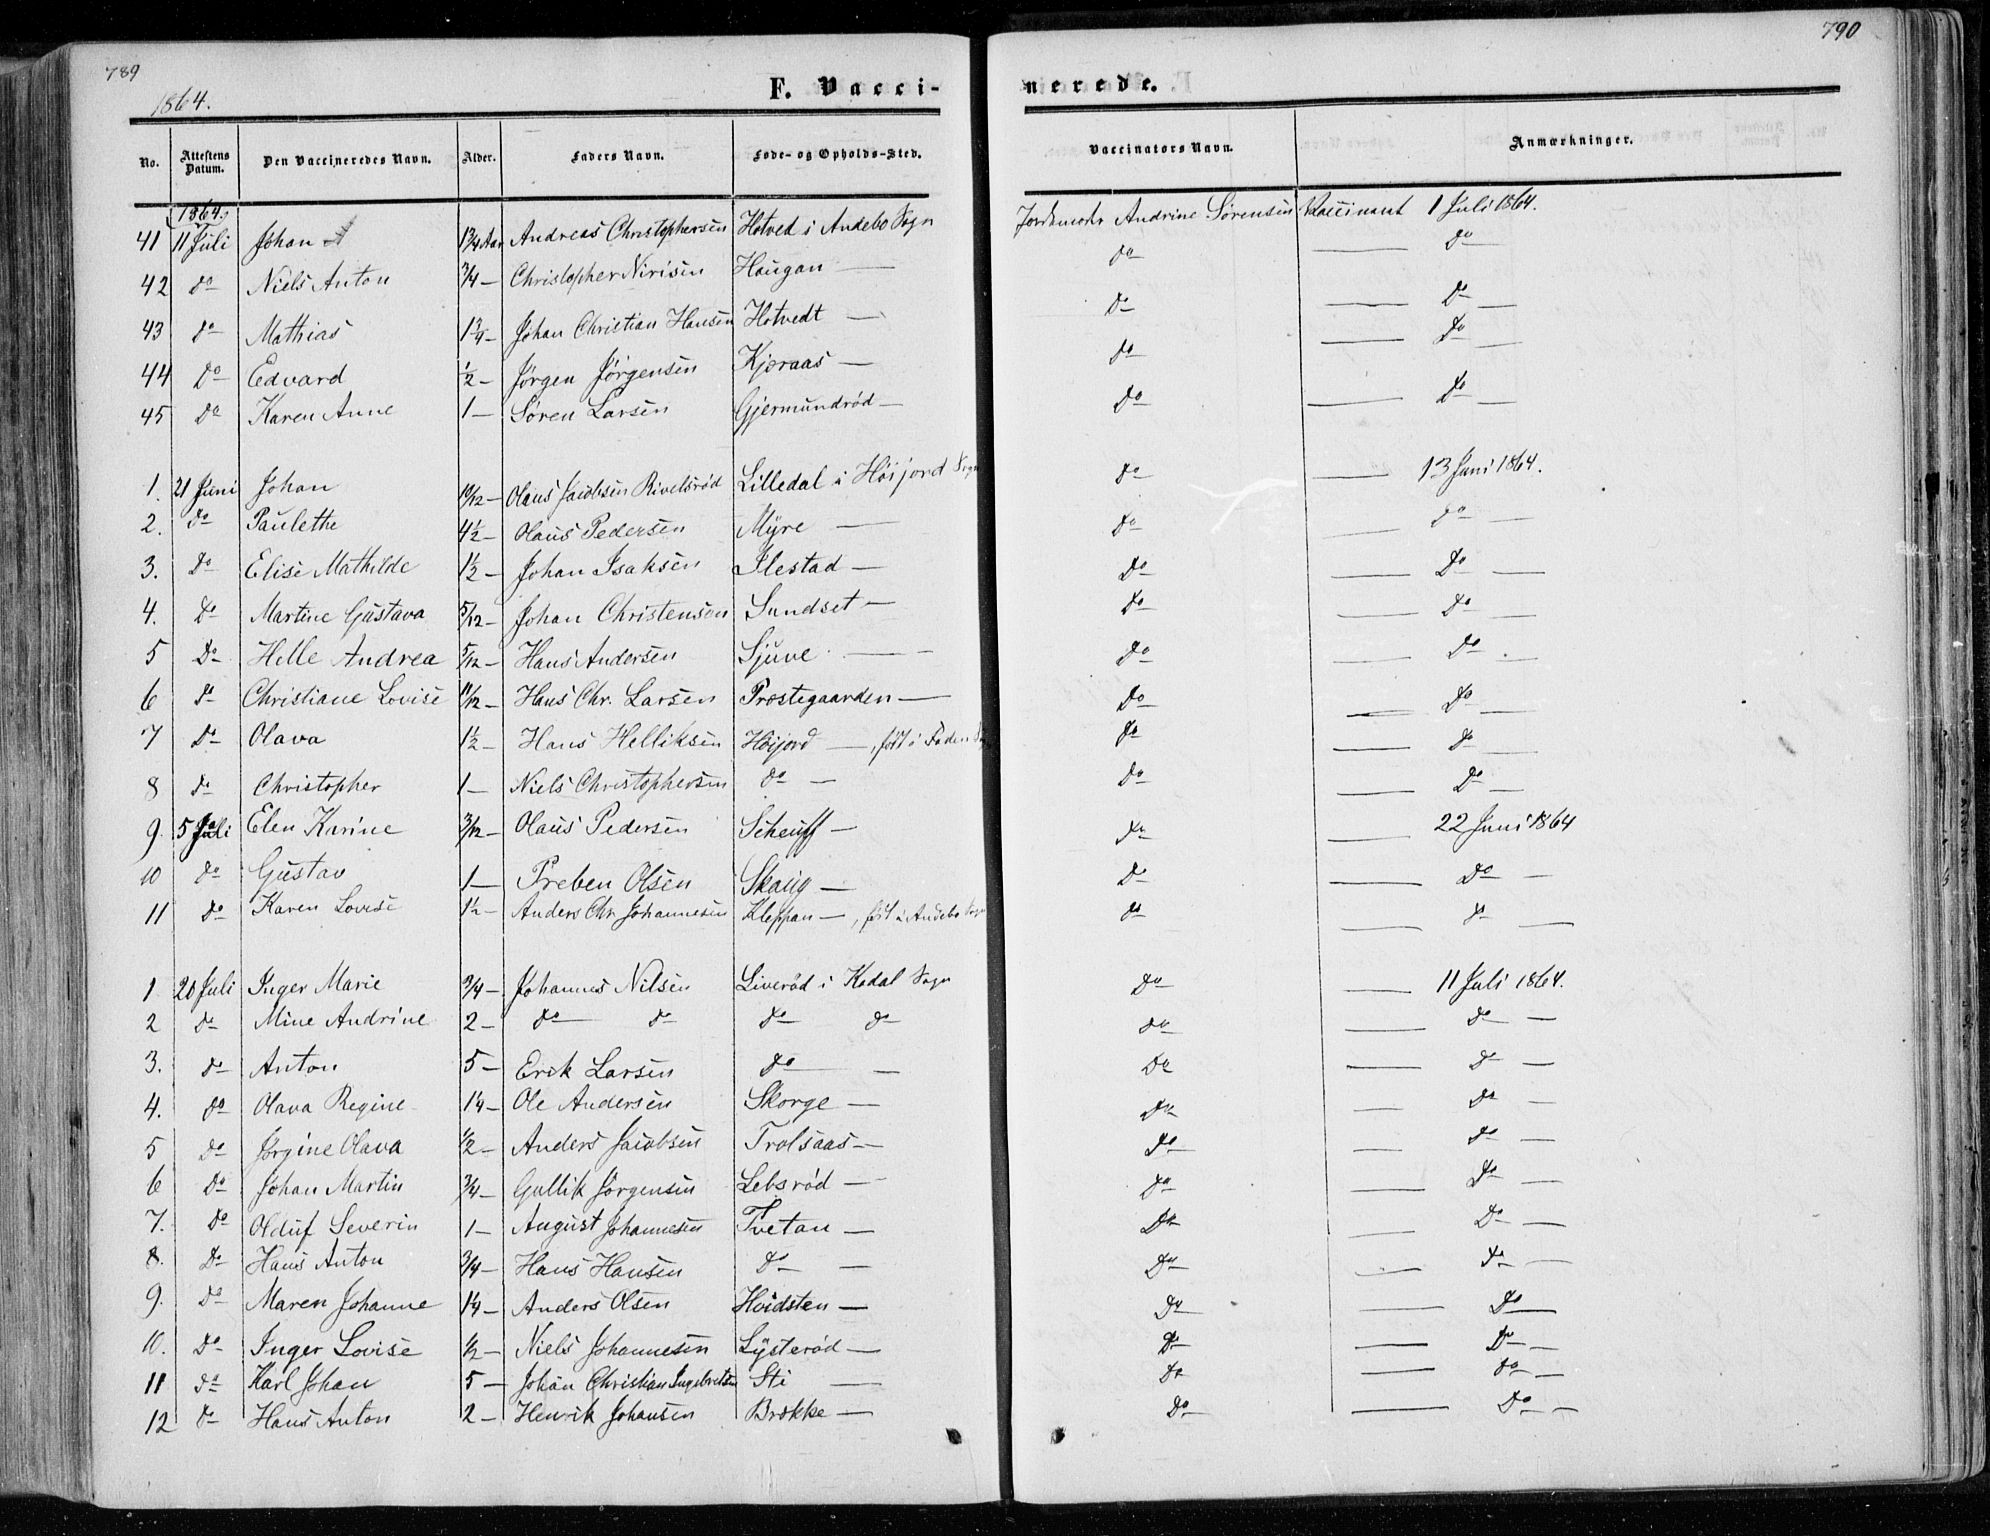 789
790
1864.
F. Vacci-
nerede.
No. Attestens Datum. Den Vaccineredes Navn. Alder. Faders Navn. Føde- og Opholds-Sted. Vaccinators Navn. Anmærkninger.
1864.
41 11 Juli Johan 1 3/4 Aar Andreas Christophersen Hotved i Andebo Sogn Jordemoder Andrine Sørensen Vaccineret 1 Juli 1864.
42 do Niels Anton 3/4 — Christopher Haugan — do — do
43 do Mathias Johan Christian Hansen Hotvedt — do — do —
44 do Edvard 1/2 — Jørgen Jørgensen Kjæraas — do — do —
45 do Karen Anne 1 — Søren Larsen Gjermundrød — do — do —
1. 21 Juni Johan 10/12 — Olaus Jacobsen Rivelsrød Lilledal i Høijord Sogn do — 13 Juni 1864.
2. do Paulethe 4 1/2 — Olaus Pedersen Myre — do — do —
3. do Elise Mathilde 1 1/2 — Johan Isaksen Ilestad — do — do —
4. do Martine Gustava 5/12 — Johan Christensen Sundset — do — do —
5 do Helle Andrea 5/12 — Hans Andersen Sjuve — do — do —
6 do Christiane Lovise 11/12 — Hans Chr. Larsen Præstegaarden — do — do —
7 do Olava 1 1/2 — Hans Helliksen Høijord —, født i do — do —
8 do Christopher 1 — Niels Christophersen do — do — do —
9. 5 Juli Elen Karine 3/12 — Olaus Pedersen — do — 22 Juni 1864
10 do Gustav 1 — Preben Olsen Skalig — do — do —
11 do Karen Lovise 1 1/2 — Anders Chr. Johannesen Kleppan —, født i Andebo Sogn do — do —
1 20 Juli Inger Marie 3/4 — Johannes Nilsen Liverød i Kodal Sogn do — 11 Juli 1864.
2 do Mine Andrine 2 — do do do do do — do —
3. do Anton 5 — Erik Larsen do — do — do —
4. do Olava Regine 1 1/4 — Ole Andersen Skorge — do — do —
5 do Jørgine Olava 1/2 — Anders Jacobsen Trolsaas — do — do —
6 do Johan Martin 3/4 — Gullik Jørgensen Lebsrød — do — do —
7. do Oluf Severin 1 — August Johannesen Tvetan — do — do —
8. do Hans Anton 3/4 — Hans Hansen do — do — do —
9. do Maren Johanne 1 1/4 — Anders Olsen Hvidsten — do — do —
10. do Inger Lovise 1/2 — Niels Johannesen Lysterød — do — do —
11 do Karl Johan 5 — Johan Christian Ingebretsen Sti — do — do —
12 do Hans Anton 2 — Henrik Johansen Brække — do — do —